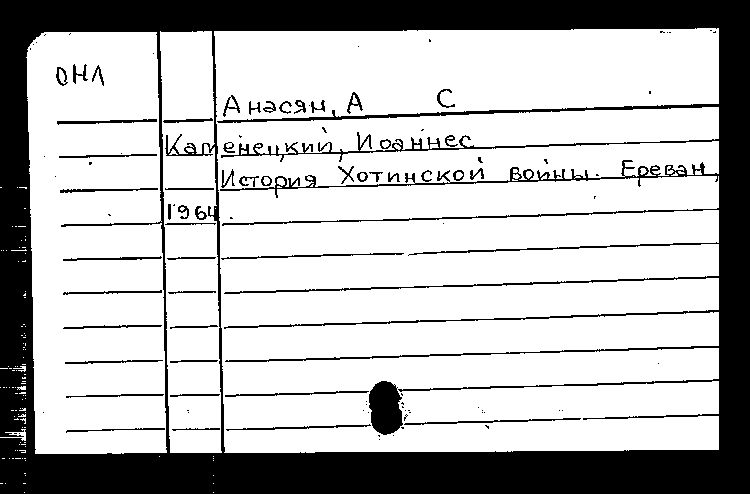 ОНЛ
Анасян, А С
Каменецкий, Иоаннес
История Хотинской войны. Ереван,
1964.